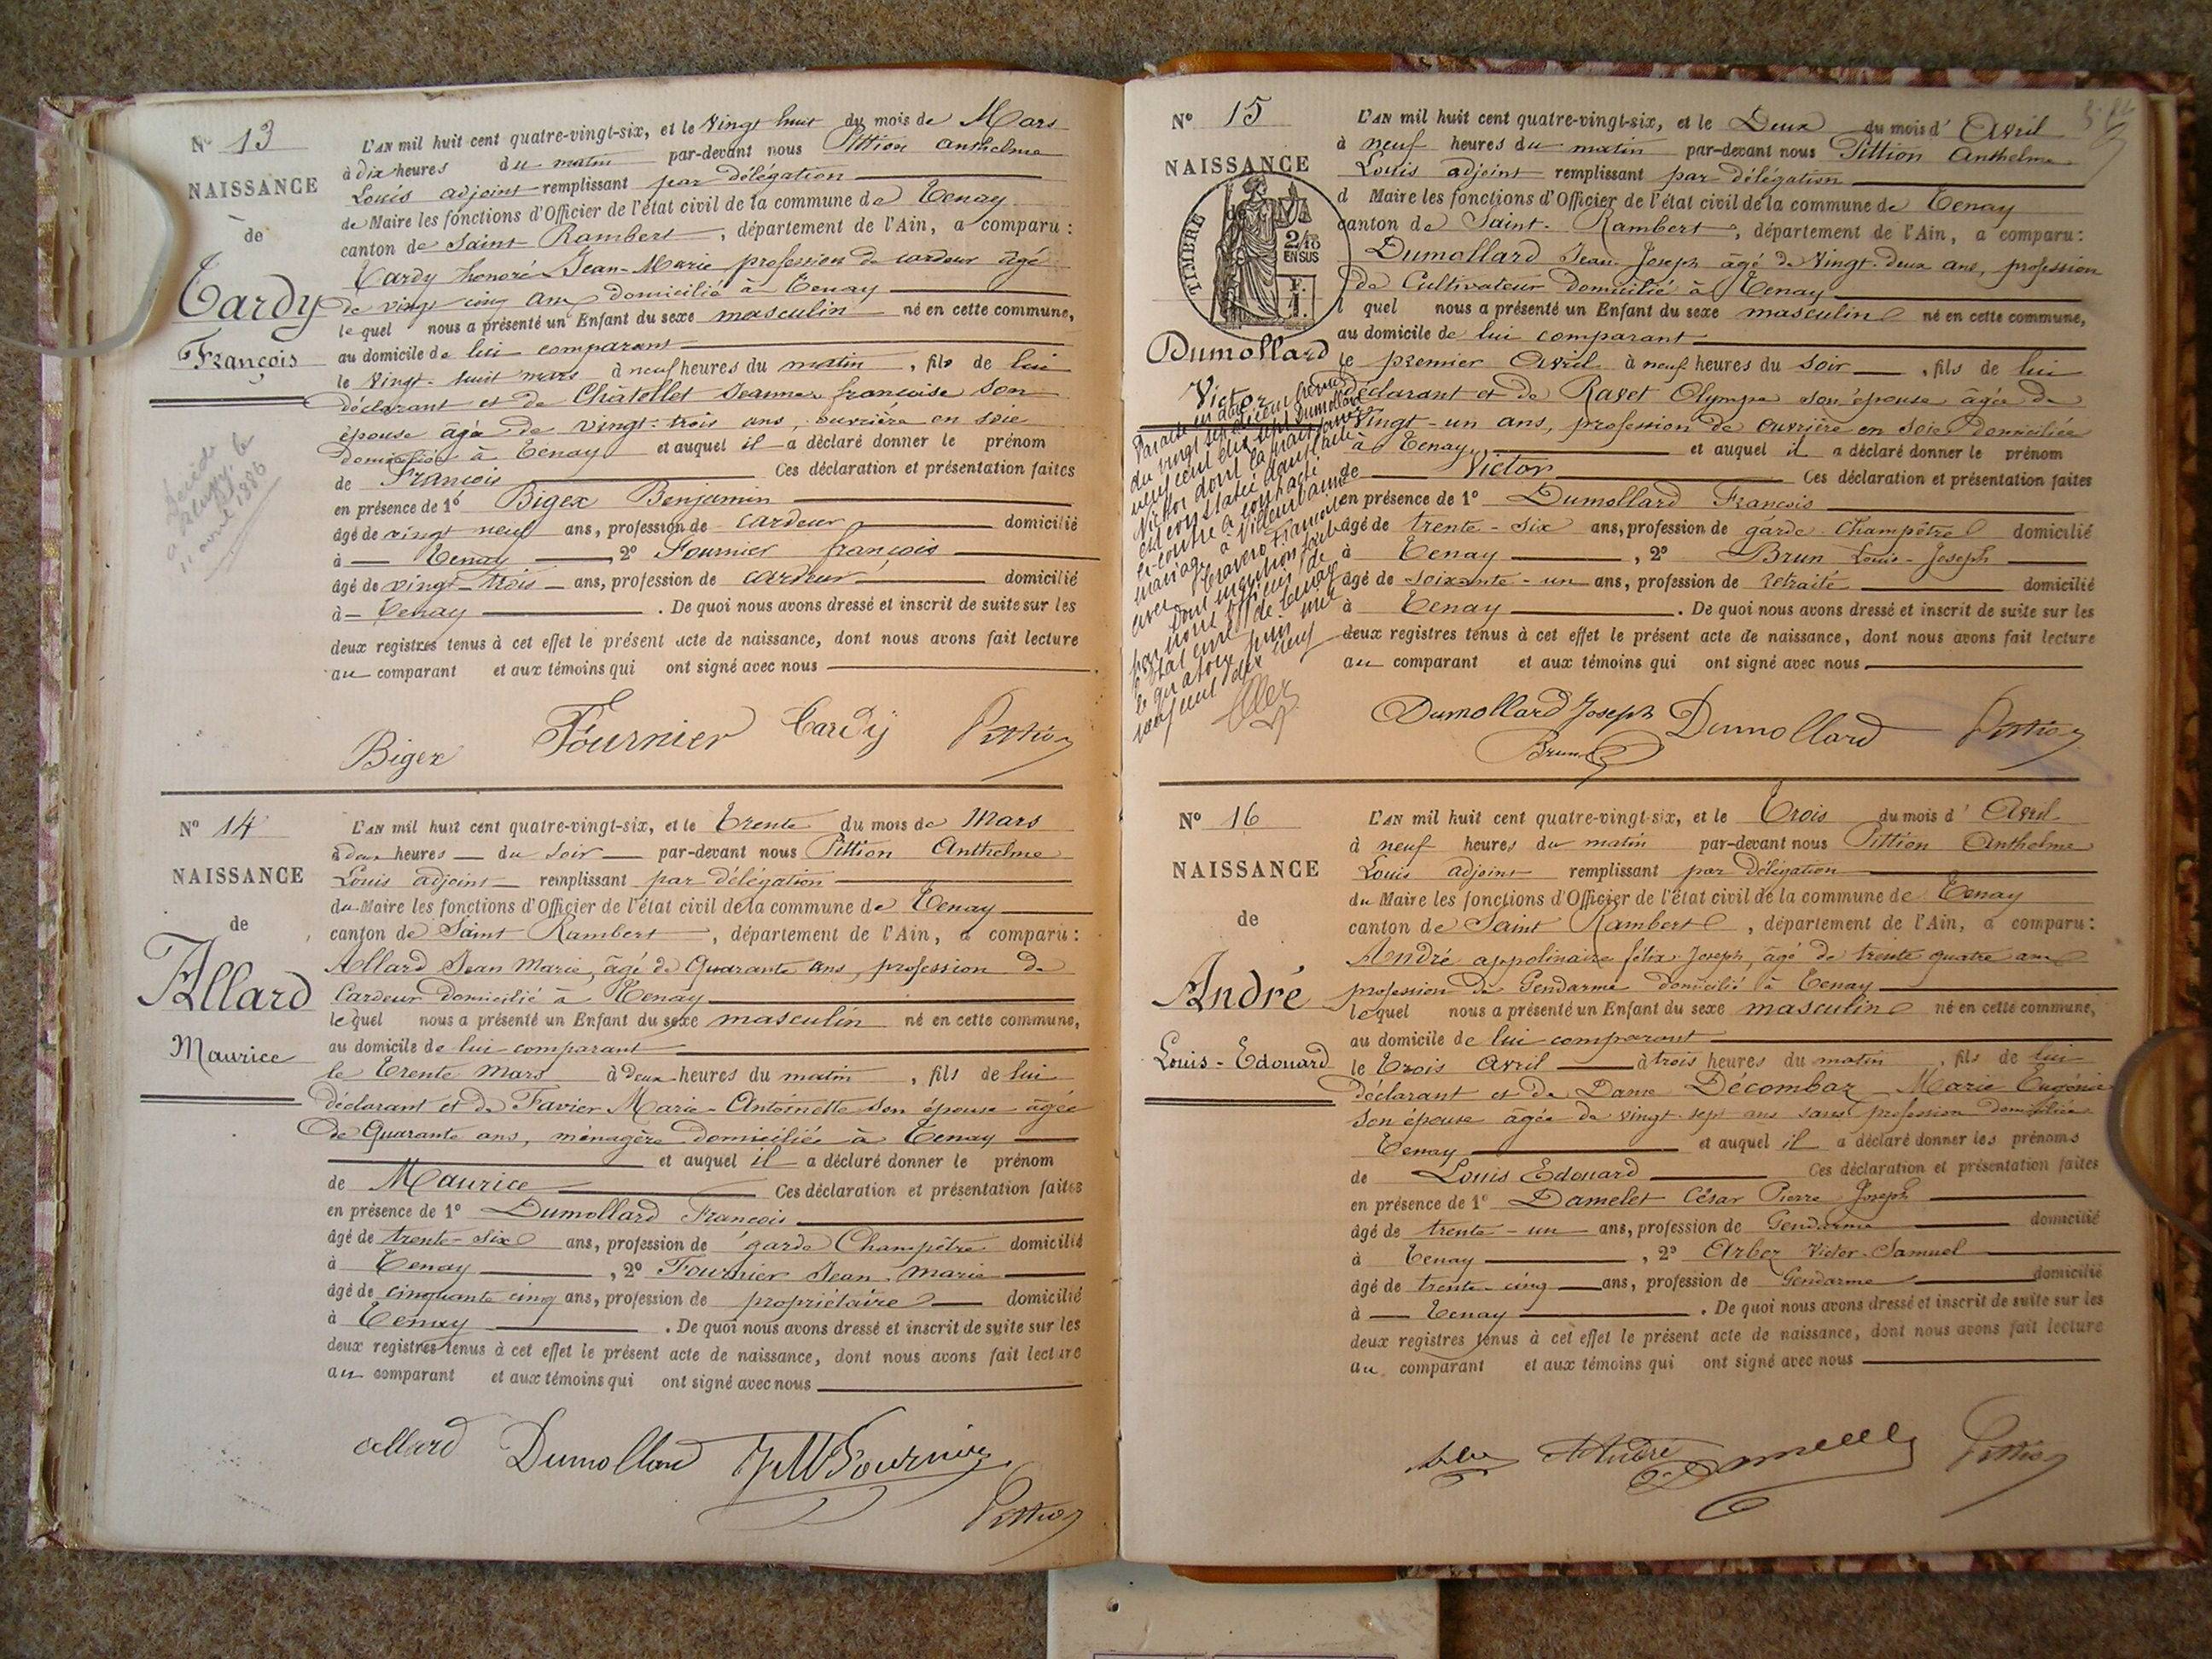 N° 13
NAISSANCE
de
Tardy
François
Décédé
à
le
11 avril 1886
L'AN mil huit cent quatre-vingt-six, et le Vingt huit du mois de Mars
à dix heures du matin par-devant nous Pittion Anthelme
Louis adjoint remplissant par délégation
de Maire les fonctions d'Officier de l'état civil de la commune de Tenay
canton de Saint-Rambert, département de l'Ain, a comparu :
Tardy honoré Jean-Marie profession de cardeur âgé
de vingt cinq ans domicilié à Tenay
le quel nous a présenté un Enfant du sexe masculin né en cette commune,
au domicile de lui comparant
le Vingt-huit mars à neuf heures du matin, fils de lui
déclarant et de Châtellet Jeanne françoise son
épouse âgée de vingt-trois ans, ouvrière en soie
domiciliée à Tenay et auquel il a déclaré donner le prénom
de François Ces déclaration et présentation faites
en présence de 1° Bigex Benjamin
âgé de vingt neuf ans, profession de cardeur domicilié
à Tenay 2° Fournier françois
âgé de vingt-trois ans, profession de cardeur domicilié
à Tenay. De quoi nous avons dressé et inscrit de suite sur les
deux registres tenus à cet effet le présent acte de naissance, dont nous avons fait lecture
au comparant et aux témoins qui ont signé avec nous
Bigex Fournier Tardy Pittion
N° 14
NAISSANCE
de
Allard
Maurice
L'AN mil huit cent quatre-vingt-six, et le Trente du mois de Mars
à deux heures du soir par-devant nous Pittion Anthelme
Louis adjoint remplissant par délégation
du Maire les fonctions d'Officier de l'état civil de la commune de Tenay
canton de Saint-Rambert, département de l'Ain, a comparu :
Allard Jean Marie, âgé de Quarante ans, profession de
Cardeur domicilié à Tenay
le quel nous a présenté un Enfant du sexe masculin né en cette commune,
au domicile de lui comparant
le Trente Mars à deux heures du matin, fils de lui
déclarant et de Favier Marie-Antoinette son épouse âgée
de Quarante ans, ménagère domiciliée à Tenay
et auquel il a déclaré donner le prénom
de Maurice Ces déclaration et présentation faites
en présence de 1° Dumollard François
âgé de trente-six ans, profession de garde Champêtre domicilié
à Tenay, 2° Fournier Jean-Marie
âgé de cinquante cinq ans, profession de propriétaire domicilié
à Tenay. De quoi nous avons dressé et inscrit de suite sur les
deux registres tenus à cet effet le présent acte de naissance, dont nous avons fait lecture
au comparant et aux témoins qui ont signé avec nous
allard Dumollard JM Fournier
Pittion
N° 15
NAISSANCE
de
TIMBRE
2/10
EN SUS
F.
1.
Dumollard
Victor
Par acte en date
du vingt sept décembre mil
neuf cent dix sept Dumollard
Victor dont la naissance
est constatée dans l'acte
ci-contre a contracté
mariage à Villeurbanne
avec Françoise
Dont mention faite
par nous officier de
l'état civil de Tenay
le quatorze juin mil
neuf cent dix neuf
L'AN mil huit cent quatre-vingt-six, et le Deux du mois d'Avril
à neuf heures du matin par-devant nous Pittion Anthelme
Louis adjoint remplissant par délégation
d Maire les fonctions d'Officier de l'état civil de la commune de Tenay
canton de Saint-Rambert, département de l'Ain, a comparu :
Dumollard Jean Joseph âgé de Vingt-deux ans, profession
de Cultivateur domicilié à Tenay
l quel nous a présenté un Enfant du sexe masculin né en cette commune,
au domicile de lui comparant
le premier Avril à neuf heures du soir, fils de lui
déclarant et de Ravet Olympe son épouse âgée de
Vingt-un ans, profession de ouvrière en soie domiciliée
à Tenay, et auquel il a déclaré donner le prénom
de Victor Ces déclaration et présentation faites
en présence de 1° Dumollard François
âgé de trente-six ans, profession de garde-Champêtre domicilié
à Tenay, 2° Brun Louis-Joseph
âgé de soixante-un ans, profession de retraité domicilié
à Tenay. De quoi nous avons dressé et inscrit de suite sur les
deux registres tenus à cet effet le présent acte de naissance, dont nous avons fait lecture
au comparant et aux témoins qui ont signé avec nous.
Dumollard Joseph Dumollard Pittion
Brun
N° 16
NAISSANCE
de
André
Louis-Edouard
L'AN mil huit cent quatre-vingt-six, et le Trois du mois d'Avril
à neuf heures du matin par-devant nous Pittion Anthelme
Louis adjoint remplissant par délégation
du Maire les fonctions d'Officier de l'état civil de la commune de Tenay
canton de Saint Rambert, département de l'Ain, a comparu :
André appolinaire félix Joseph, âgé de trente quatre ans
profession de Gendarme domicilié à Tenay
lequel nous a présenté un Enfant du sexe masculin né en cette commune,
au domicile de lui comparant
le Trois Avril à trois heures du matin, fils de lui
déclarant et de Dame Décombaz Marie Eugénie
son épouse âgée de vingt-sept ans sans profession domiciliée
Tenay et auquel il a déclaré donner les prénoms
de Louis Edouard Ces déclaration et présentation faites
en présence de 1° Damelet César Pierre Joseph
âgé de trente-un ans, profession de Gendarme domicilié
à Tenay, 2° Arbez Victor-Samuel
âgé de trente-cinq ans, profession de Gendarme domicilié
à Tenay. De quoi nous avons dressé et inscrit de suite sur les
deux registres tenus à cet effet le présent acte de naissance, dont nous avons fait lecture
au comparant et aux témoins qui ont signé avec nous
André Pittion